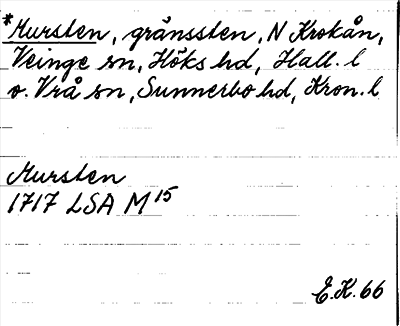 *Mursten, gränssten, N Krokån,
Veinge sn, Höks hd, Hall. l
o. Vrå sn, Sunnerbo hd, Kron. l
Mursten
1717 LSA M 15
E.K. 66